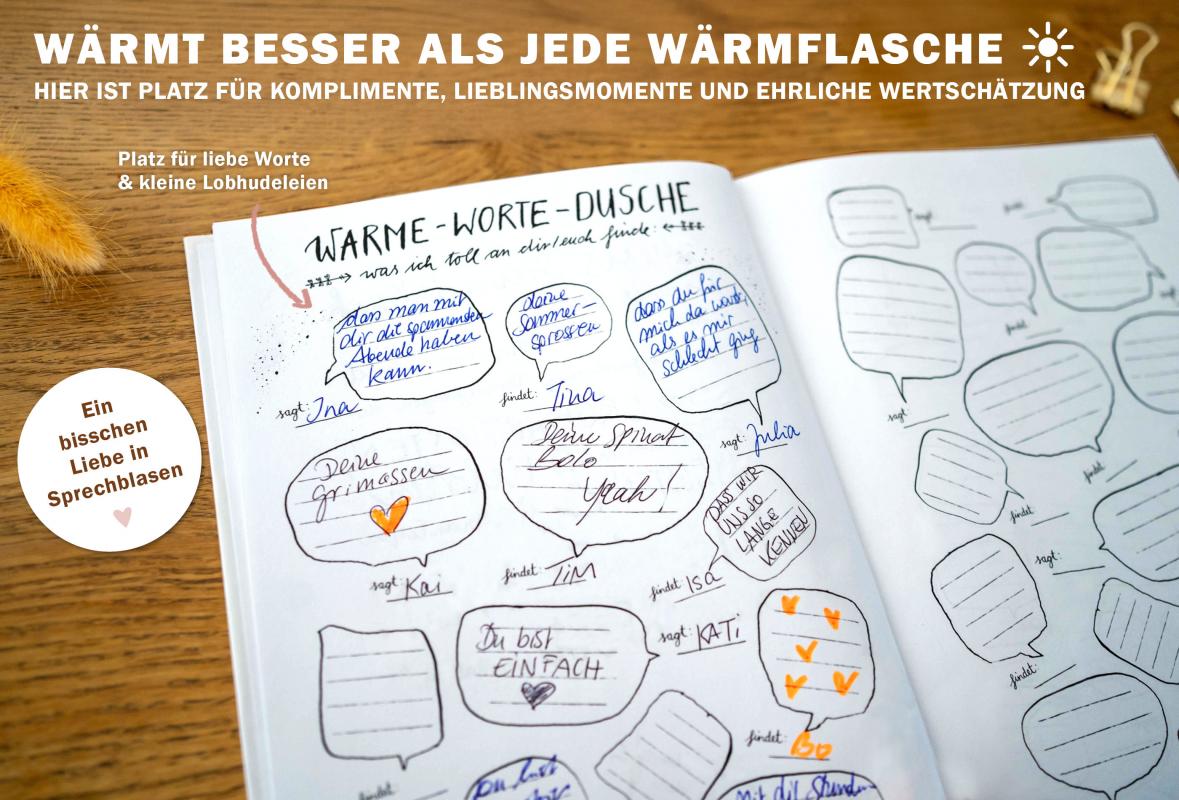 WÄRMT BESSER ALS JEDE WÄRMFLASCHE
HIER IST PLATZ FÜR KOMPLIMENTE, LIEBLINGSMOMENTE UND EHRLICHE WERTSCHÄTZUNG
Platz für liebe Worte
& kleine Lobhudeleien
WARME-WORTE-DUSCHE
was ich toll an dir/euch finde:
dass man mit
dir die spannensten
Abende haben
kann.
sagt: Ina
deine
Sommer-
sprossen
findet: Tina
dass du für
mich da warst,
als es mir
schlecht ging
sagt: Julia
Ein
bisschen
Liebe in
Sprechblasen
Deine
grimassen
sagt: Kai
Deine Spinat
Bolo
Yeah!
findet: TiM
DASS WIR
UNS SO
LANGE
KENNEN
findet: Isa
Du bist
EINFACH
sagt: KATi
findet: Bo
Du hast
mit dir Stunden
sagt:
findet:
findet:
sagt:
findet:
findet: